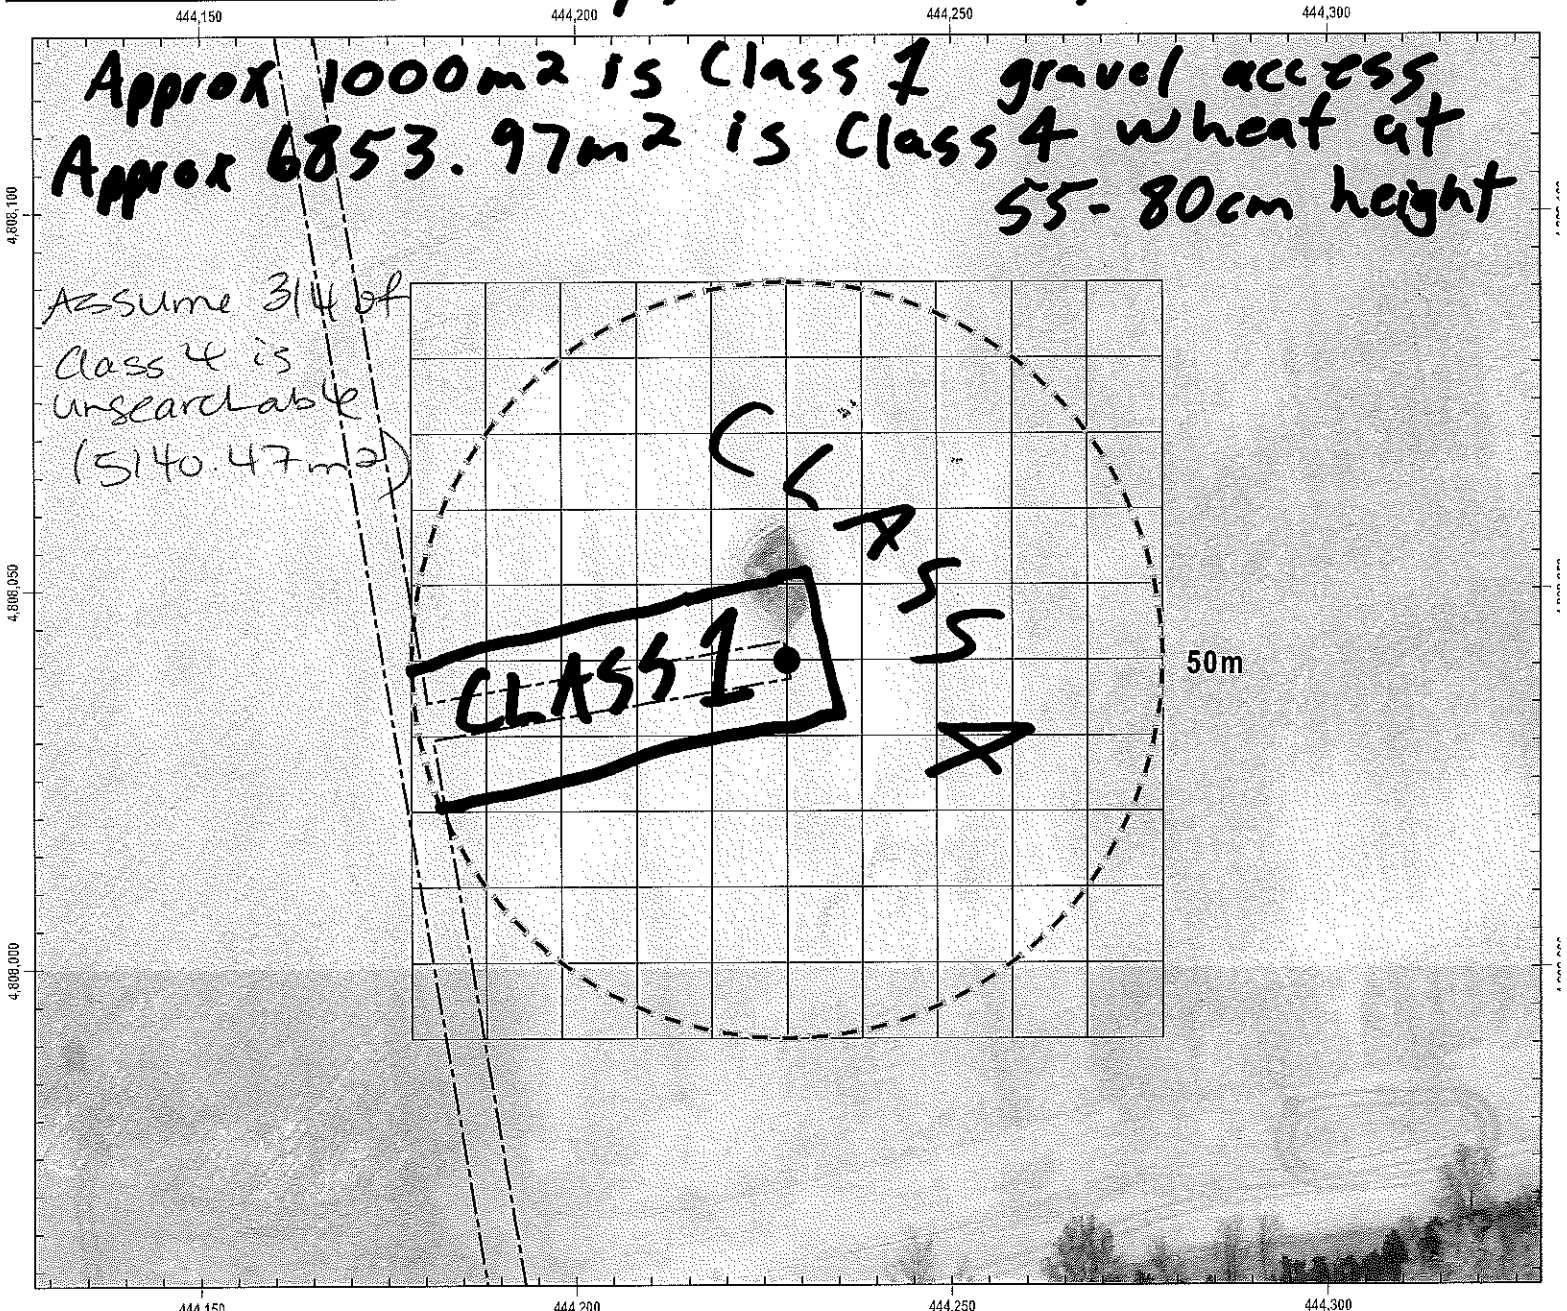 444,150 444,200 444,250 444,300
Approx 1000m2 is Class 1 gravel access
Approx 6853.97m2 is Class 4 wheat at
55-80cm height
4,808,100
Assume 3/4 of
Class 4 is
unsearchable
(5140.47m2)
CLASS 4
4,808,050
CLASS 1
50m
4,808,000
444,150 444,200 444,250 444,300